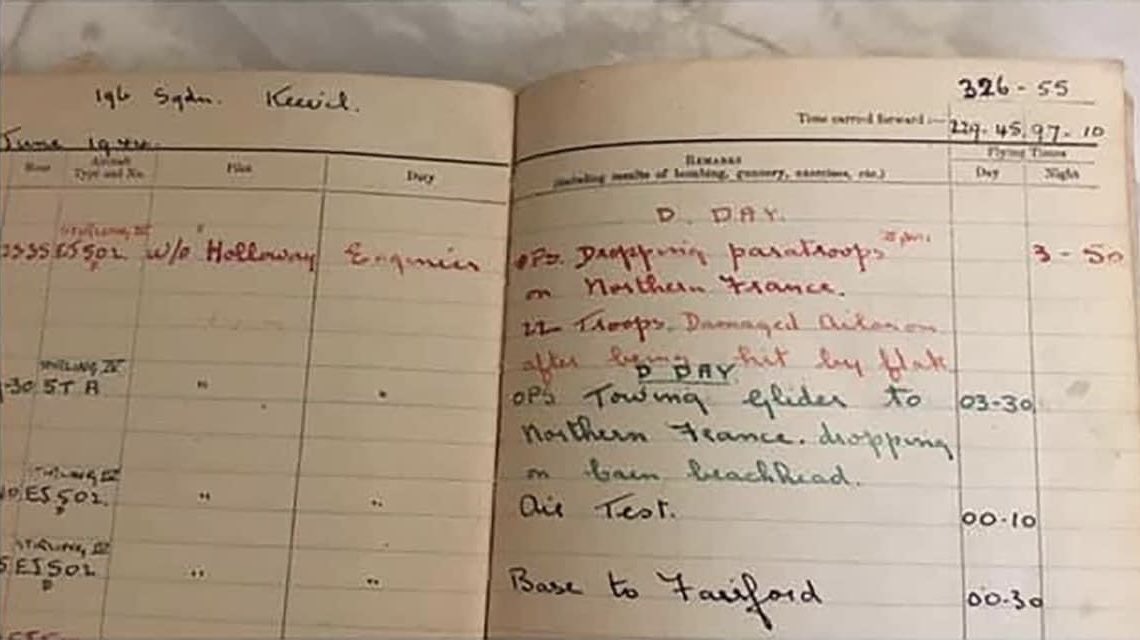 196 Sqdn. Keevil.
326 - 55
Time carried forward :—
229-45 97-10
June 1944.
Hour
Aircraft Type and No.
Pilot
Duty
REMARKS
(including results of bombing, gunnery, exercises, etc.)
Flying Times
Day
Night
D. DAY.
STIRLING IV
2335 EJ502 W/O Holloway Engineer OPS. Dropping paratroops 3 - 50
F
on Northern France.
22 Troops. Damaged Aileron
after being hit by flak
D DAY
STIRLING IV
-30 5T A " " OPS Towing Glider to 03-30
Northern France. dropping
on Caen beachhead.
STIRLING IV
EJ502 " " Air Test. 00-10
STIRLING IV
5 EJ502 " " Base to Fairford 00-30